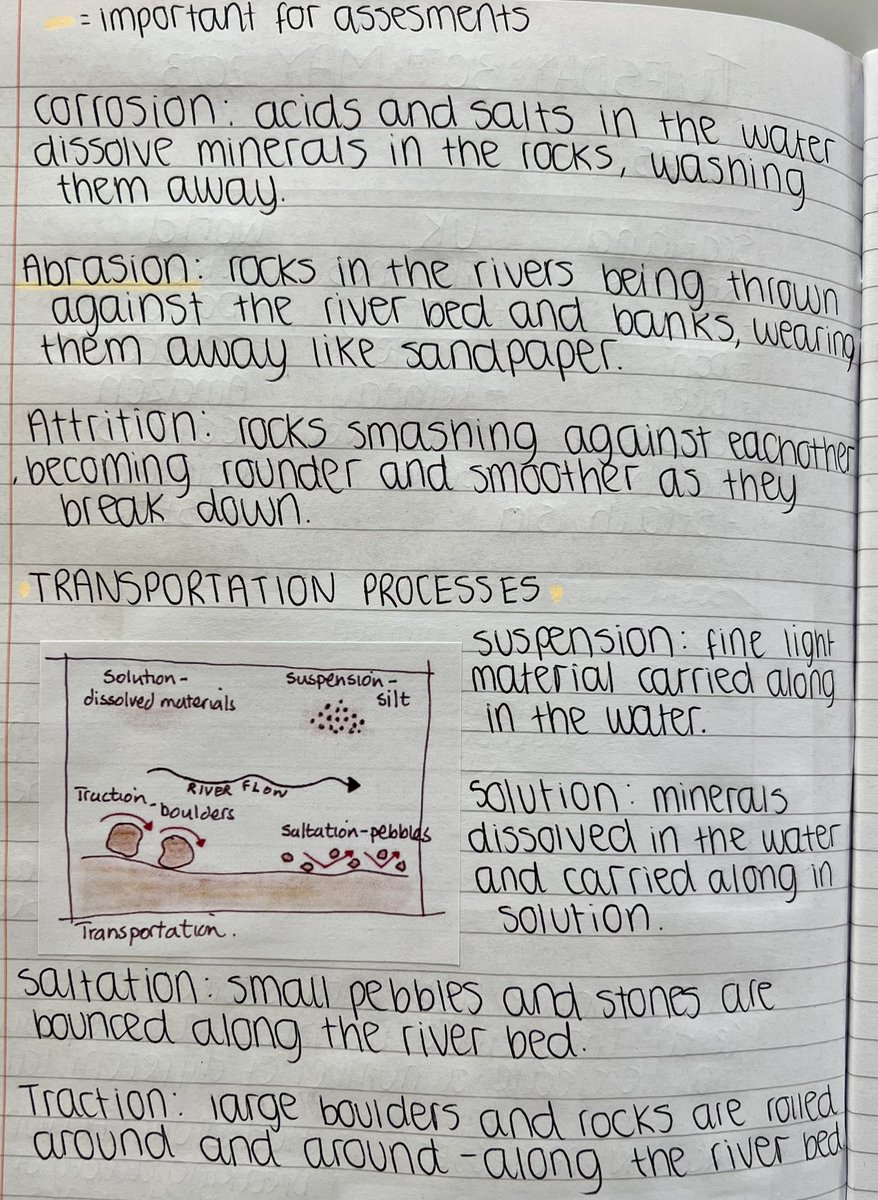 = important for assesments
corrosion: acids and salts in the water
dissolve minerals in the rocks, washing
them away.
Abrasion: rocks in the rivers being thrown
against the river bed and banks, wearing
them away like sandpaper.
Attrition: rocks smashing against eachother
becoming rounder and smoother as they
break down.
TRANSPORTATION PROCESSES
suspension: fine light
material carried along
in the water.
solution: minerals
dissolved in the water
and carried along in
solution.
Solution-
dissolved materials
Suspension-
silt
RIVER FLOW
Traction-
boulders
Saltation-pebbles
Transportation.
saltation: small pebbles and stones are
bounced along the river bed.
Traction: large boulders and rocks are rolled
around and around - along the river bed